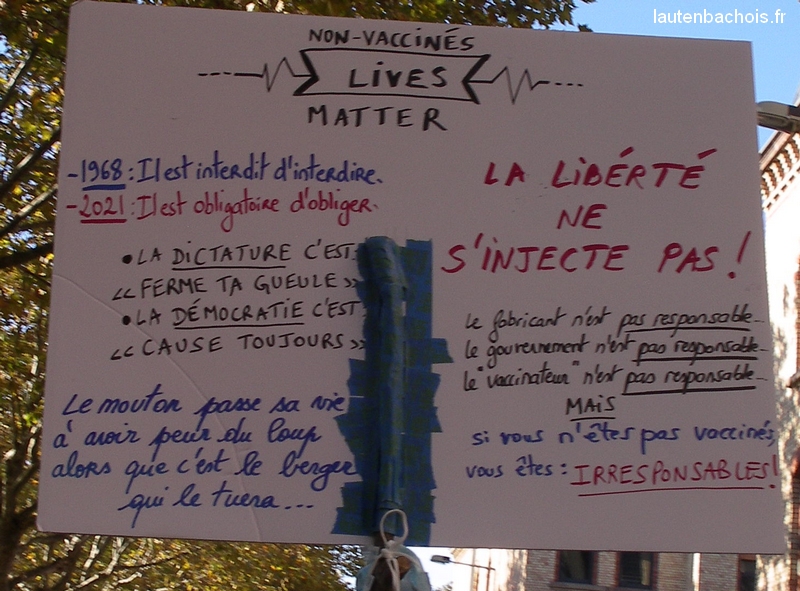 lautenbachois.fr
NON-VACCINÉS
LIVES
MATTER
-1968: Il est interdit d'interdire.
-2021: Il est obligatoire d'obliger.
• LA DICTATURE C'EST
"FERME TA GUEULE"
• LA DÉMOCRATIE C'EST
"CAUSE TOUJOURS"
Le mouton passe sa vie
à avoir peur du loup
alors que c'est le berger
qui le tuera...
LA LIBÉRTÉ
NE
S'INJECTE PAS!
Le fabricant n'est pas responsable...
le gouvernement n'est pas responsable...
le "vaccinateur" n'est pas responsable...
MAIS
si vous n'êtes pas vaccinés,
vous êtes: IRRESPONSABLES!